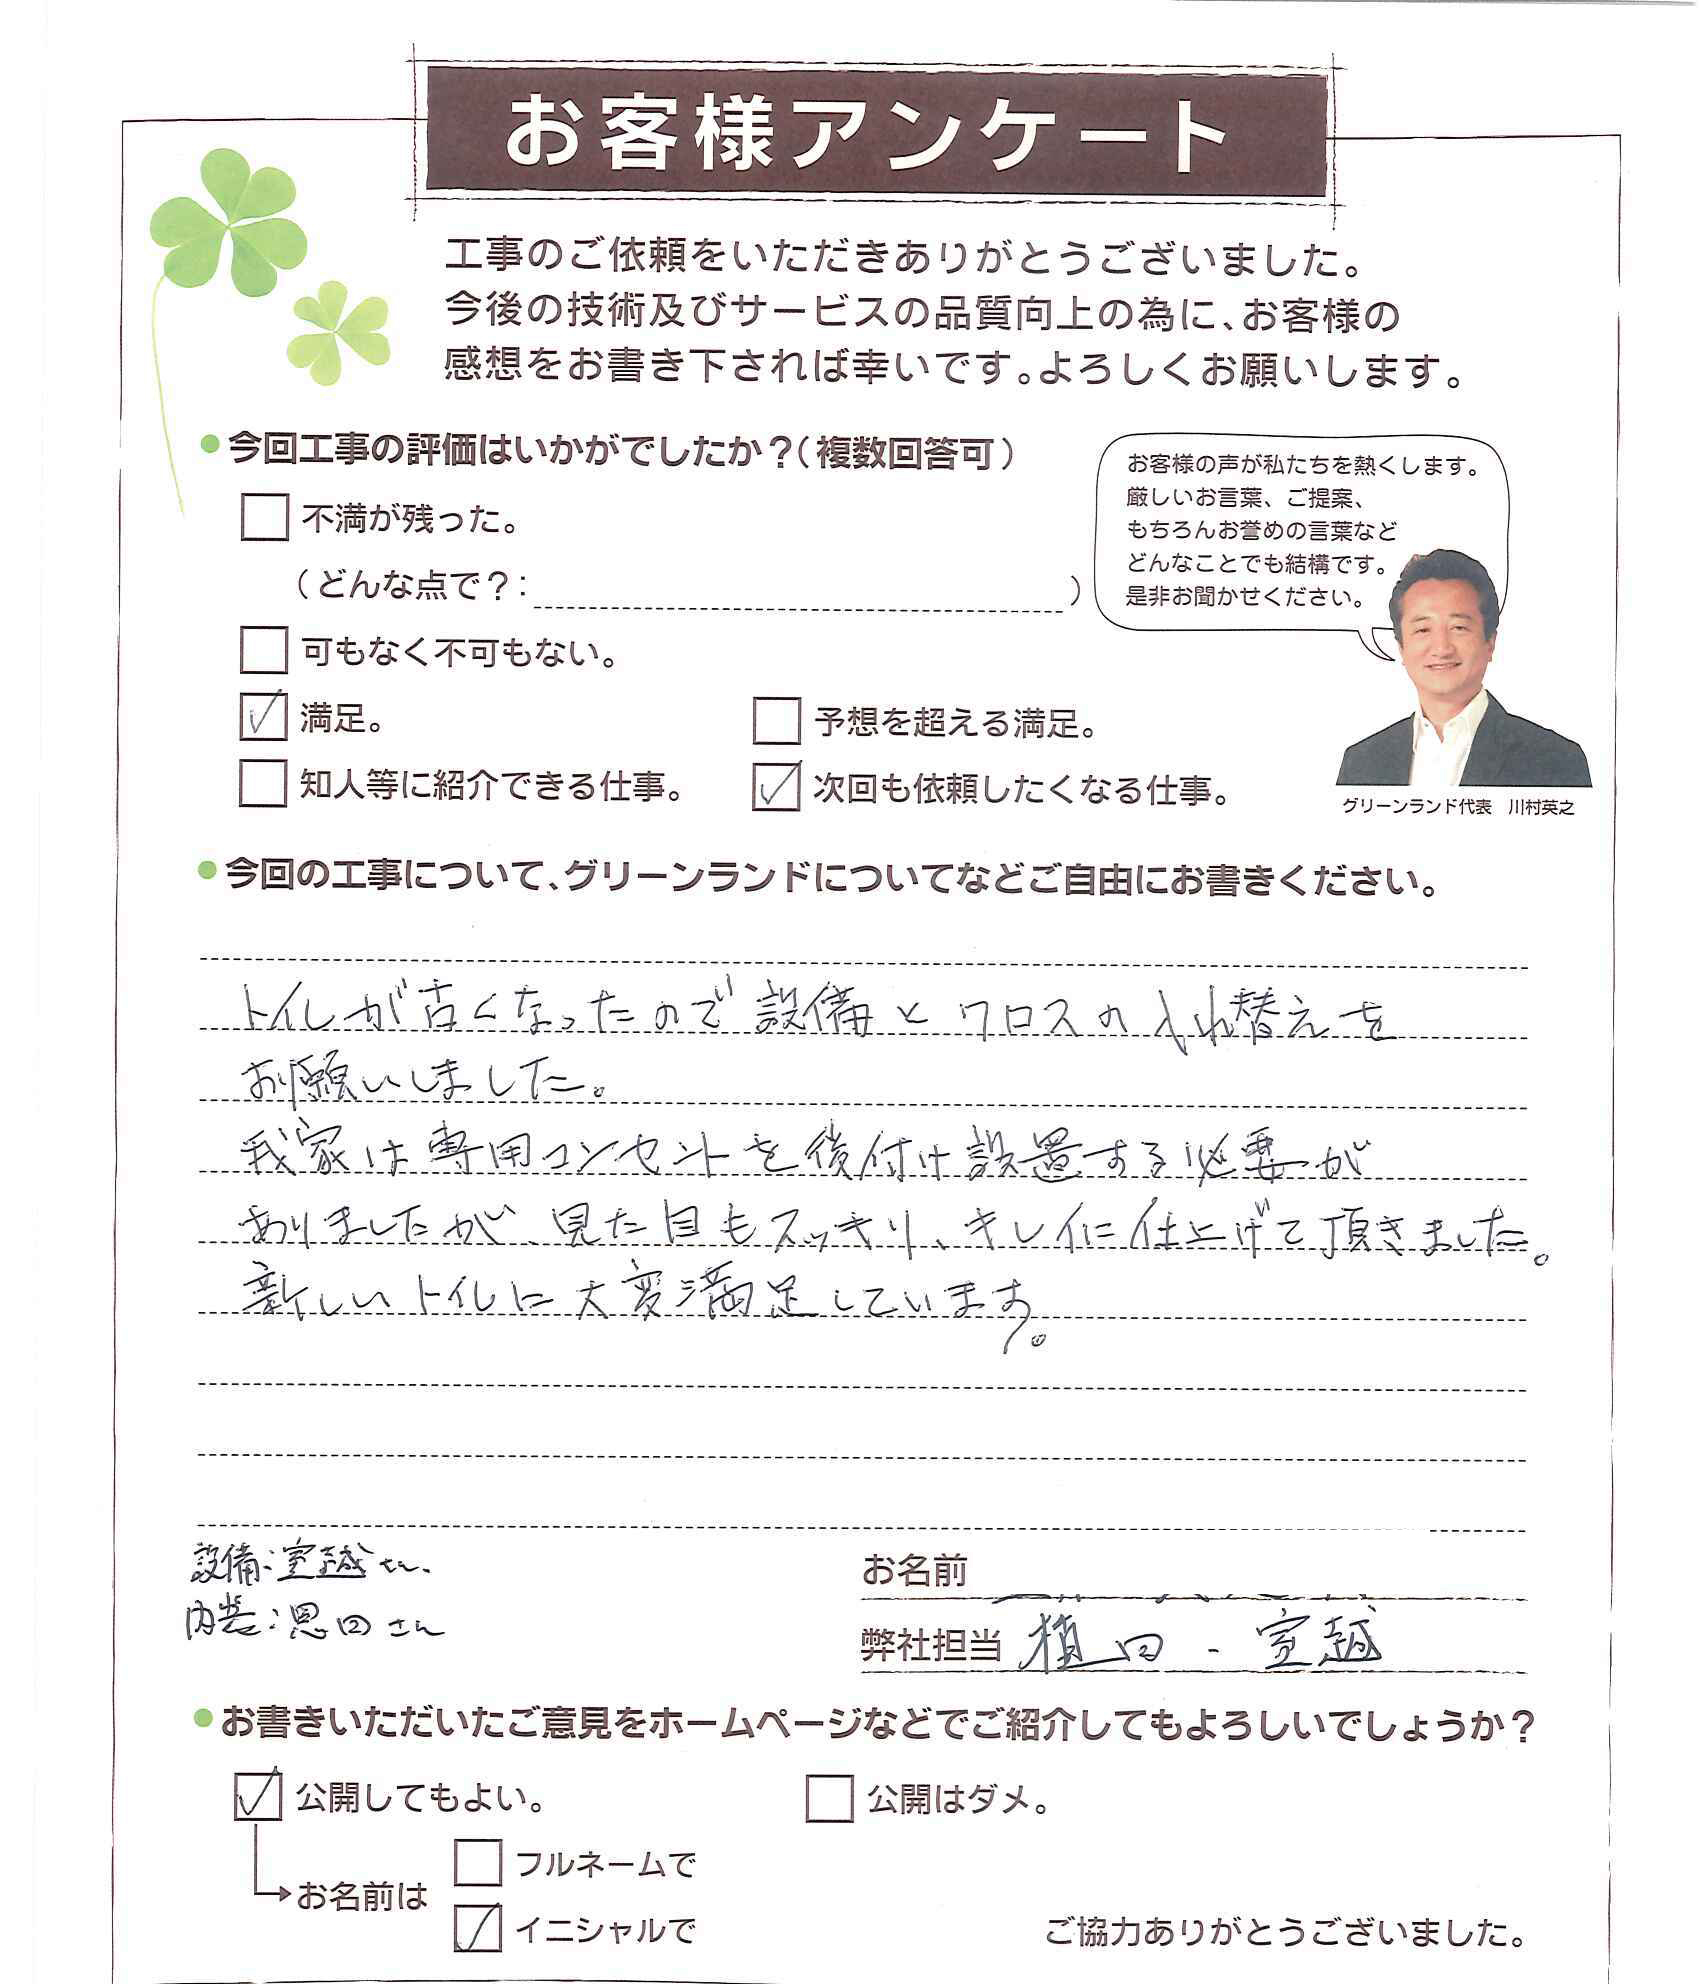 お客様アンケート
工事のご依頼をいただきありがとうございました。
今後の技術及びサービスの品質向上の為に、お客様の
感想をお書き下されば幸いです。よろしくお願いします。
今回工事の評価はいかがでしたか？(複数回答可)
不満が残った。
(どんな点で？: )
可もなく不可もない。
満足。
予想を超える満足。
知人等に紹介できる仕事。
次回も依頼したくなる仕事。
お客様の声が私たちを熱くします。
厳しいお言葉、ご提案、
もちろんお誉めの言葉など
どんなことでも結構です。
是非お聞かせください。
グリーンランド代表　川村英之
今回の工事について、グリーンランドについてなどご自由にお書きください。
トイレが古くなったので設備とクロスの入れ替えを
お願いしました。
我家は専用コンセントを後付け設置する必要が
ありましたが、見た目もスッキリ、キレイに仕上げて頂きました。
新しいトイレに大変満足しています。
設備:室越さん
内装:恩田さん
お名前
弊社担当 植田・室越
お書きいただいたご意見をホームページなどでご紹介してもよろしいでしょうか？
公開してもよい。
公開はダメ。
お名前は
フルネームで
イニシャルで
ご協力ありがとうございました。